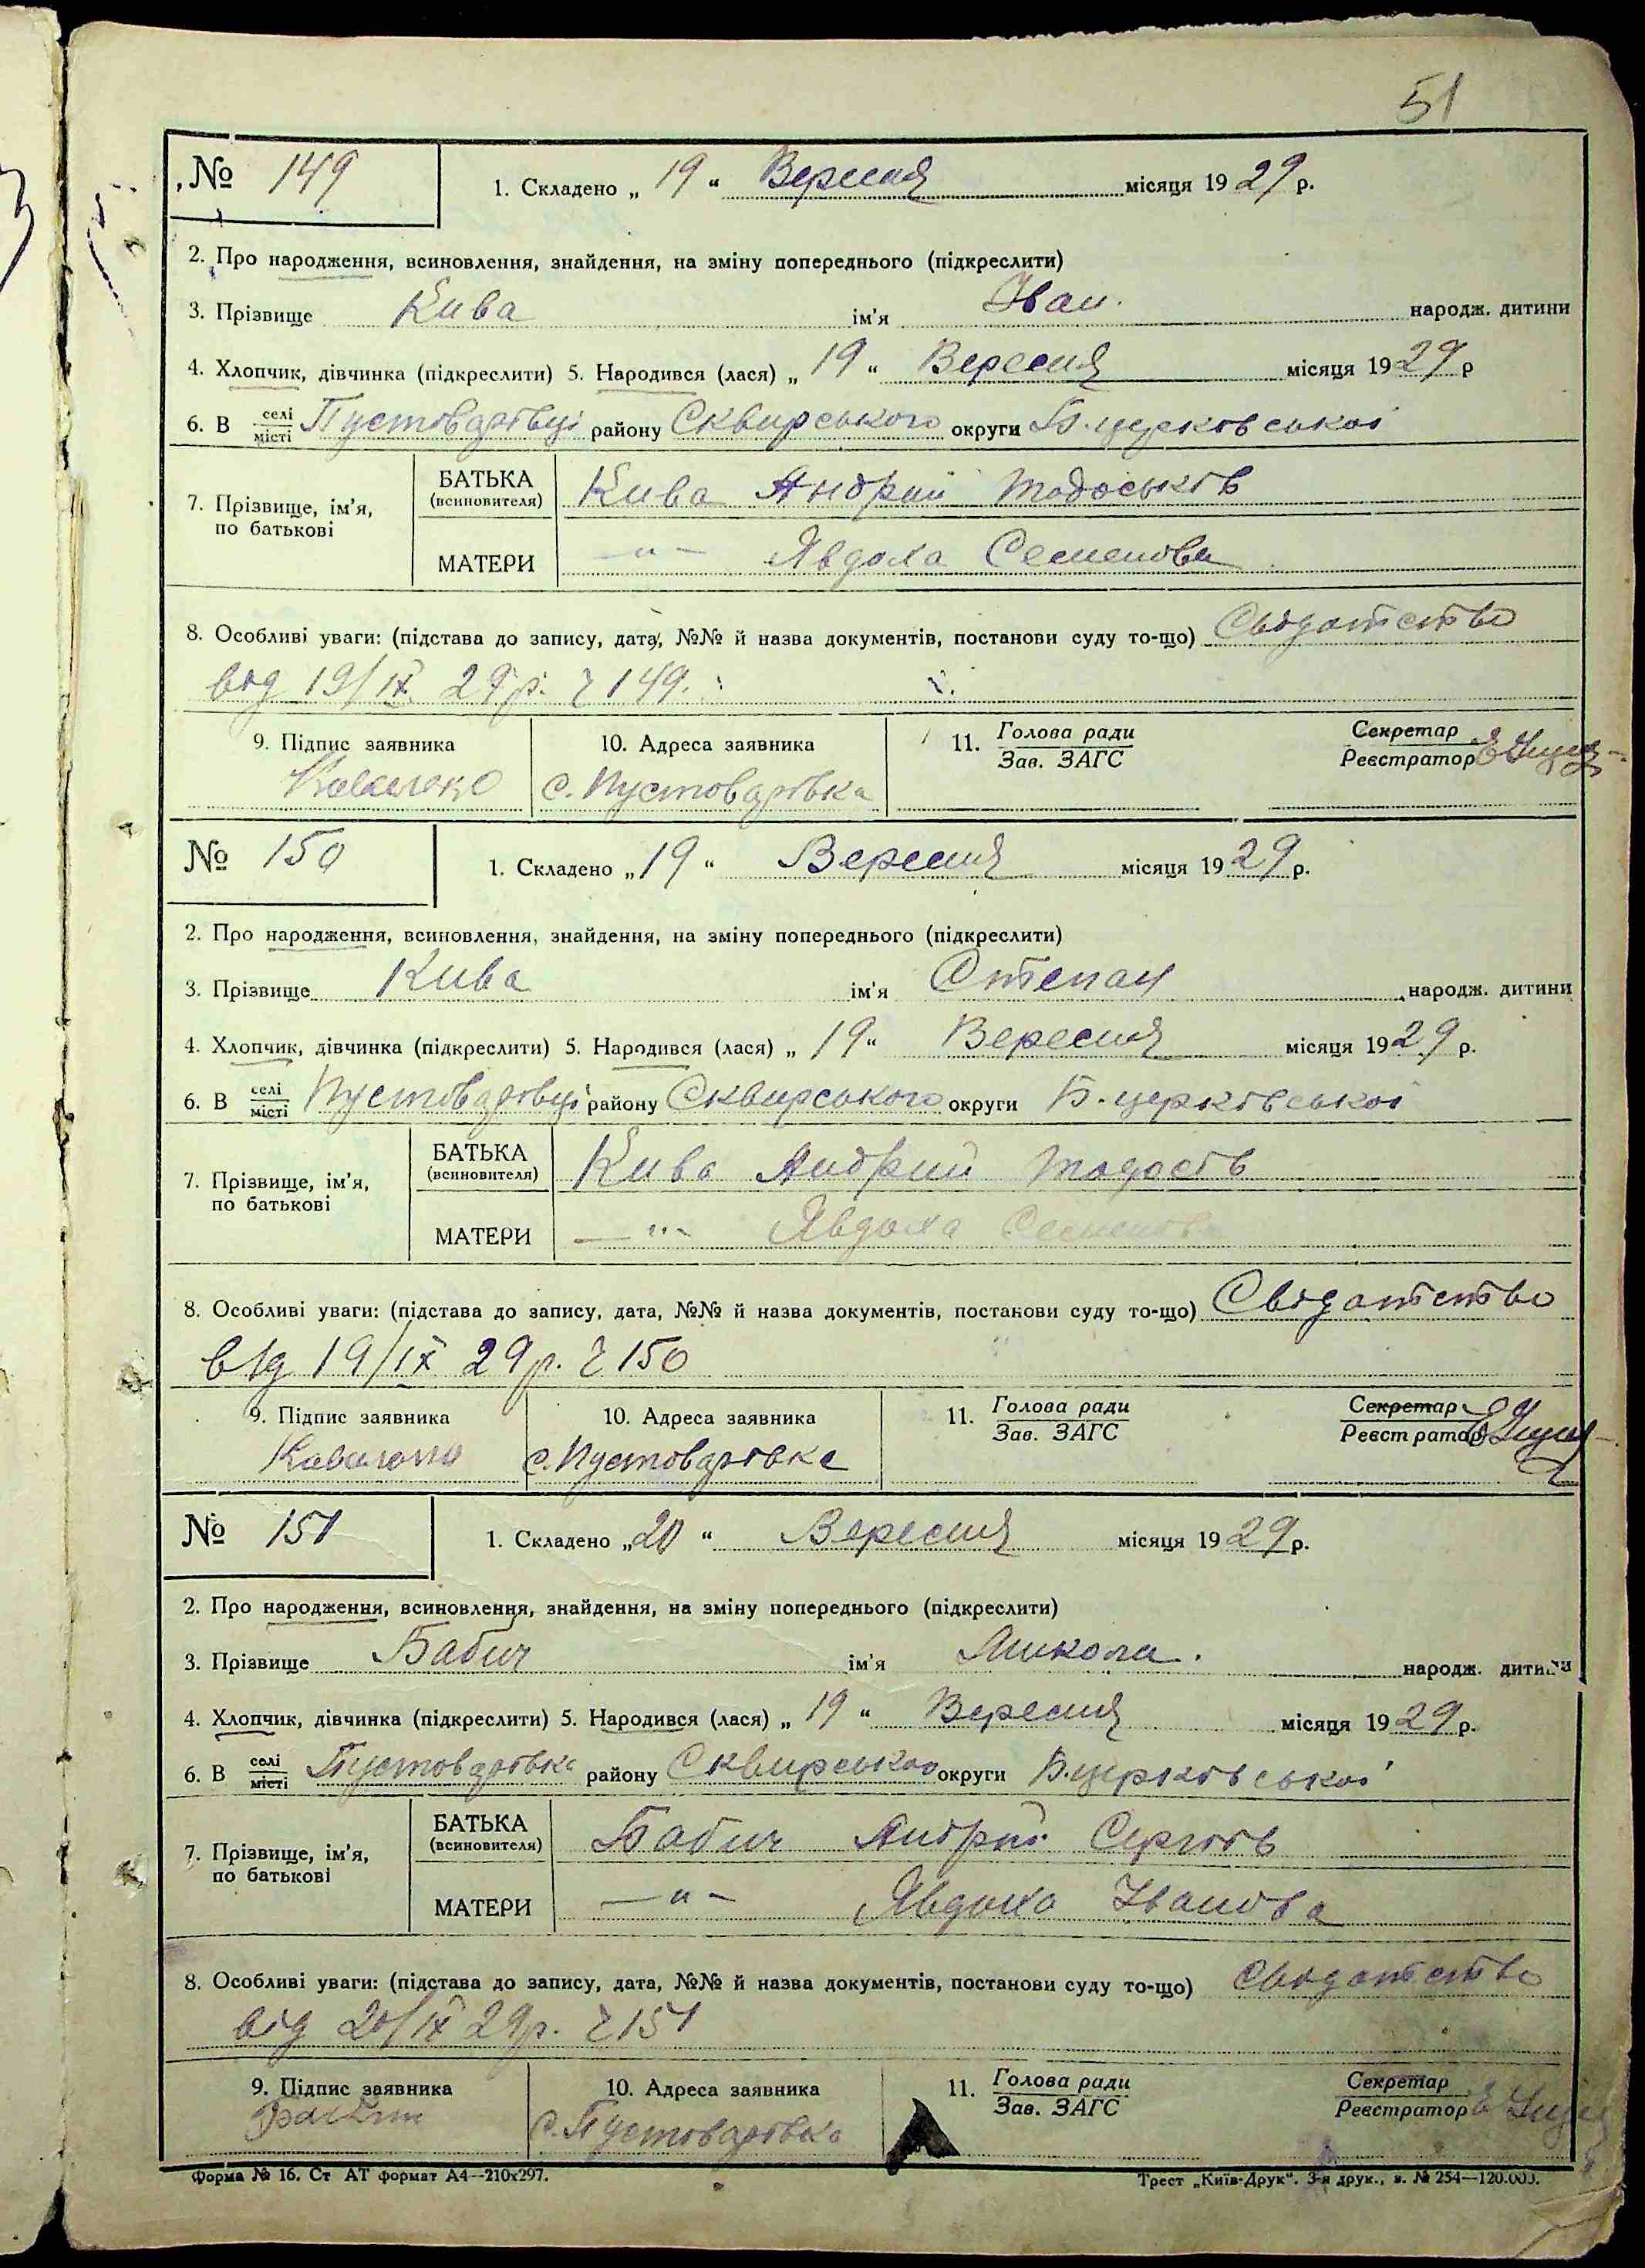 51
№ 149
1. Складено „ 19 “ Вересня місяця 1929 р.
2. Про народження, всиновлення, знайдення, на зміну попереднього (підкреслити)
3. Прізвище Кива ім'я Иван. народж. дитини
4. Хлопчик, дівчинка (підкреслити) 5. Народився (лася) „ 19 “ Вересня місяця 1929 р
6. В селі місті Пустоварівці району Сквирського округи Б. церківської
7. Прізвище, ім'я, по батькові
БАТЬКА (всиновителя) Кива Андрий Тодоськів
МАТЕРИ —„— Явдоха Семенова
8. Особливі уваги: (підстава до запису, дата, №№ й назва документів, постанови суду то-що) Свідотство
від 19/ІХ 29 р. č 149.
9. Підпис заявника
10. Адреса заявника
11. Голова ради
Зав. ЗАГС
Секретар
Реєстратор
с. Пустоварівка
№ 150
1. Складено „ 19 “ Вересня місяця 1929 р.
2. Про народження, всиновлення, знайдення, на зміну попереднього (підкреслити)
3. Прізвище Кива ім'я Степан народж. дитини
4. Хлопчик, дівчинка (підкреслити) 5. Народився (лася) „ 19 “ Вересня місяця 1929 р.
6. В селі місті Пустоварівці району Сквирського округи Б. церківської
7. Прізвище, ім'я, по батькові
БАТЬКА (всиновителя) Кива Андрий Тодосів
МАТЕРИ —„— Явдоха Семенова
8. Особливі уваги: (підстава до запису, дата, №№ й назва документів, постанови суду то-що) Свідотство
від 19/ІХ 29 р. č 150
9. Підпис заявника
10. Адреса заявника
11. Голова ради
Зав. ЗАГС
Секретар
Реєстратор
с. Пустоварівка
№ 151
1. Складено „ 20 “ Вересня місяця 1929 р.
2. Про народження, всиновлення, знайдення, на зміну попереднього (підкреслити)
3. Прізвище Бабич ім'я Микола. народж. дитини
4. Хлопчик, дівчинка (підкреслити) 5. Народився (лася) „ 19 “ Вересня місяця 1929 р.
6. В селі місті Пустоварівка району Сквирського округи Б. церківської
7. Прізвище, ім'я, по батькові
БАТЬКА (всиновителя) Бабич Андрий Сергіів
МАТЕРИ —„— Явдоха Іванова
8. Особливі уваги: (підстава до запису, дата, №№ й назва документів, постанови суду то-що) Свідотство
від 20/ІХ 29 р. č 151
9. Підпис заявника
10. Адреса заявника
11. Голова ради
Зав. ЗАГС
Секретар
Реєстратор
с. Пустоварівка
Форма № 16. Ст АТ формат А4—210х297.
Трест „Київ-Друк“. 3-я друк., з. № 254—120.000.